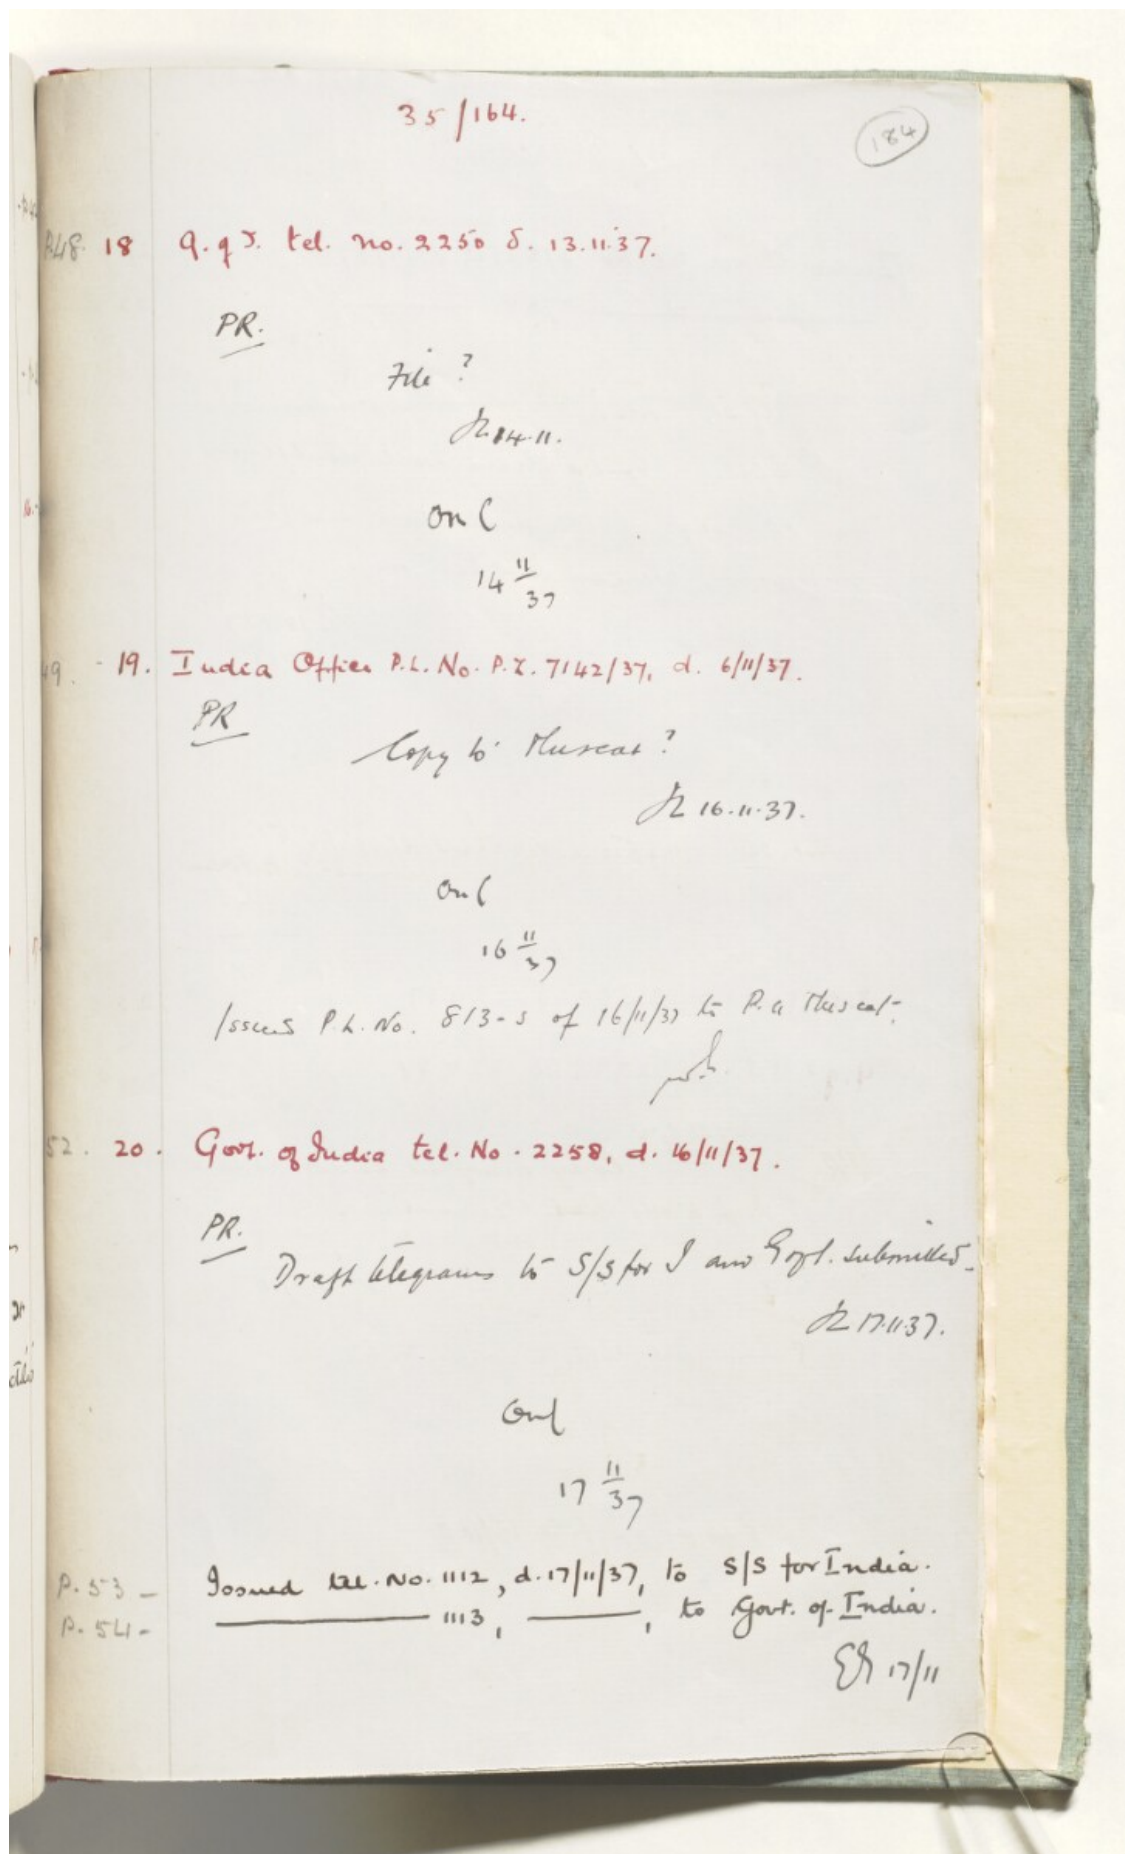 35/164.
184
P.48. 18 G. of I. tel. no. 2250 d. 13.11.37.
PR.
File ?
14.11.
14 11/37
49. - 19. India Office P.L. No. P.Z. 7142/37, d. 6/11/37.
PR
Copy to Muscat ?
16.11.37.
16 11/37
Issued P.L. No. 813-S of 16/11/37 to P.A. Muscat.
52. 20. Govt. of India tel. No. 2258, d. 16/11/37.
PR.
Draft telegrams to S/S for I and Govt. submitted.
17.11.37.
17 11/37
P. 53 - Issued tel. No. 1112, d. 17/11/37, to S/S for India.
P. 54 - 1113, , to Govt. of India.
17/11